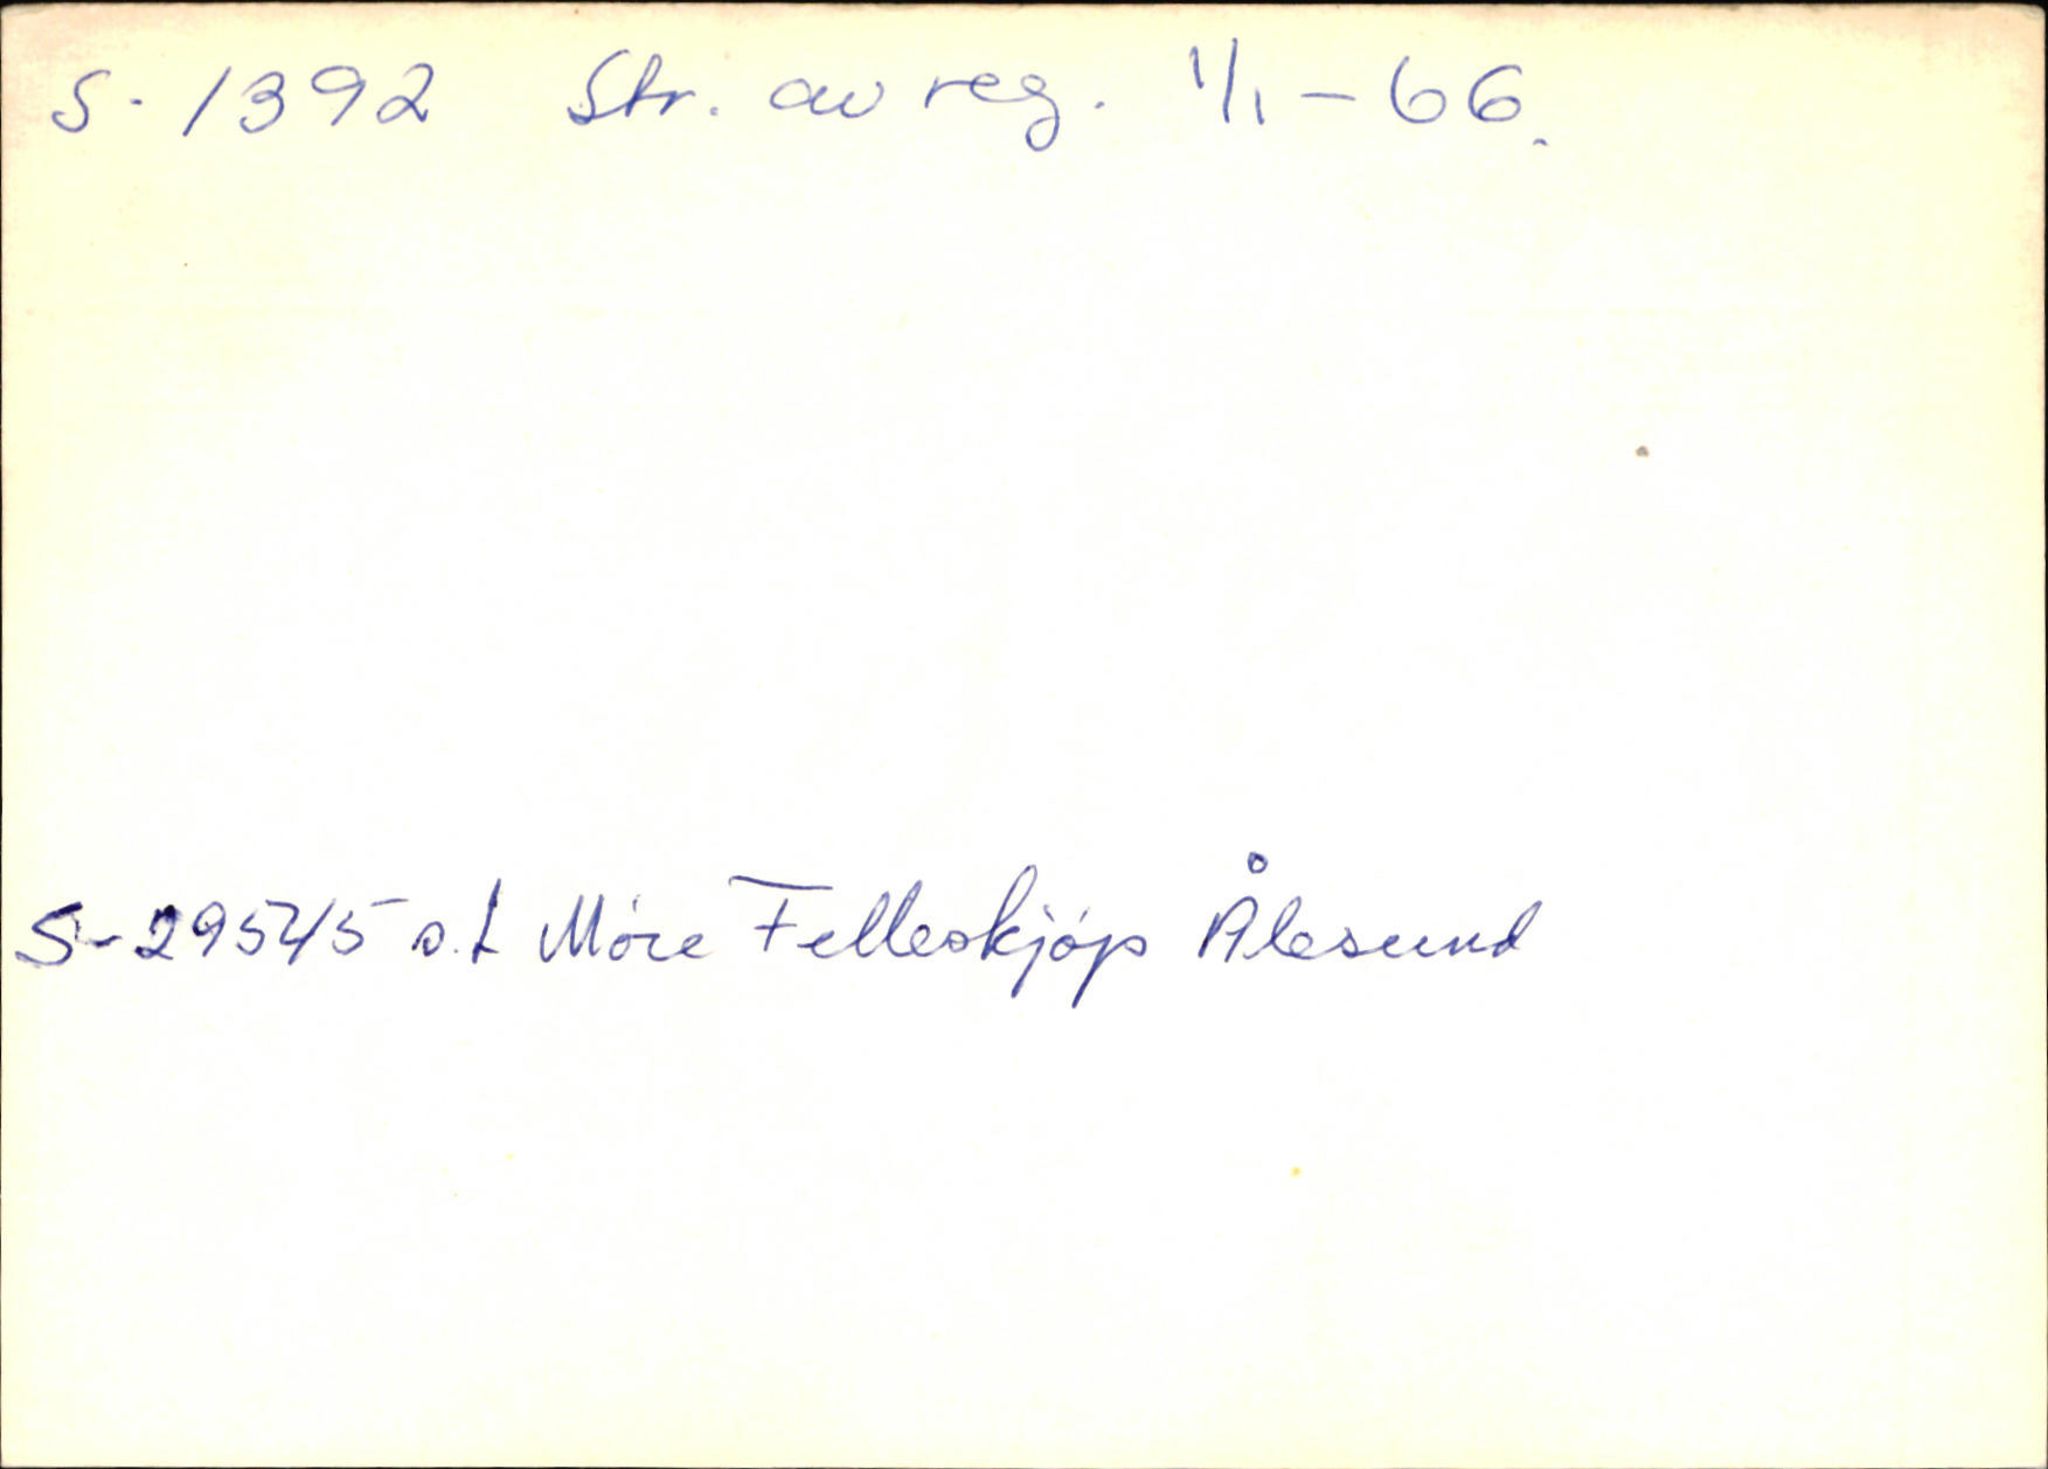 S-1392 Str. av reg. 1/1-66.
S-29545 s.t Móre Felleskjóp Ålesund